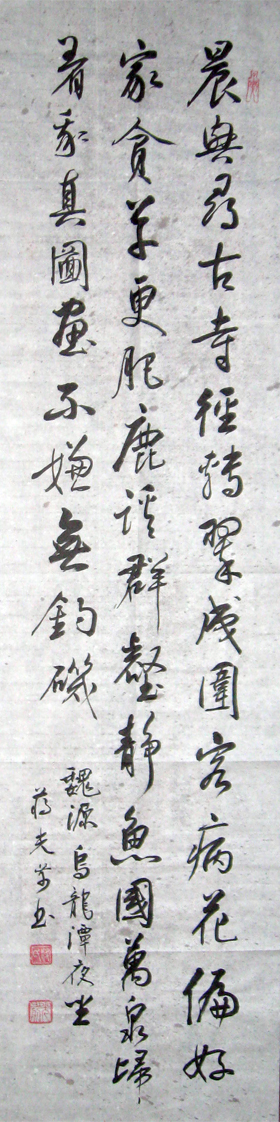 晨興尋古寺徑轉翠成圍客病花偏好
家貧草更肥鹿譁群壑靜魚國萬泉歸
著我真圖畫不嫌無釣磯
魏源烏龍潭夜坐
蔣光華書